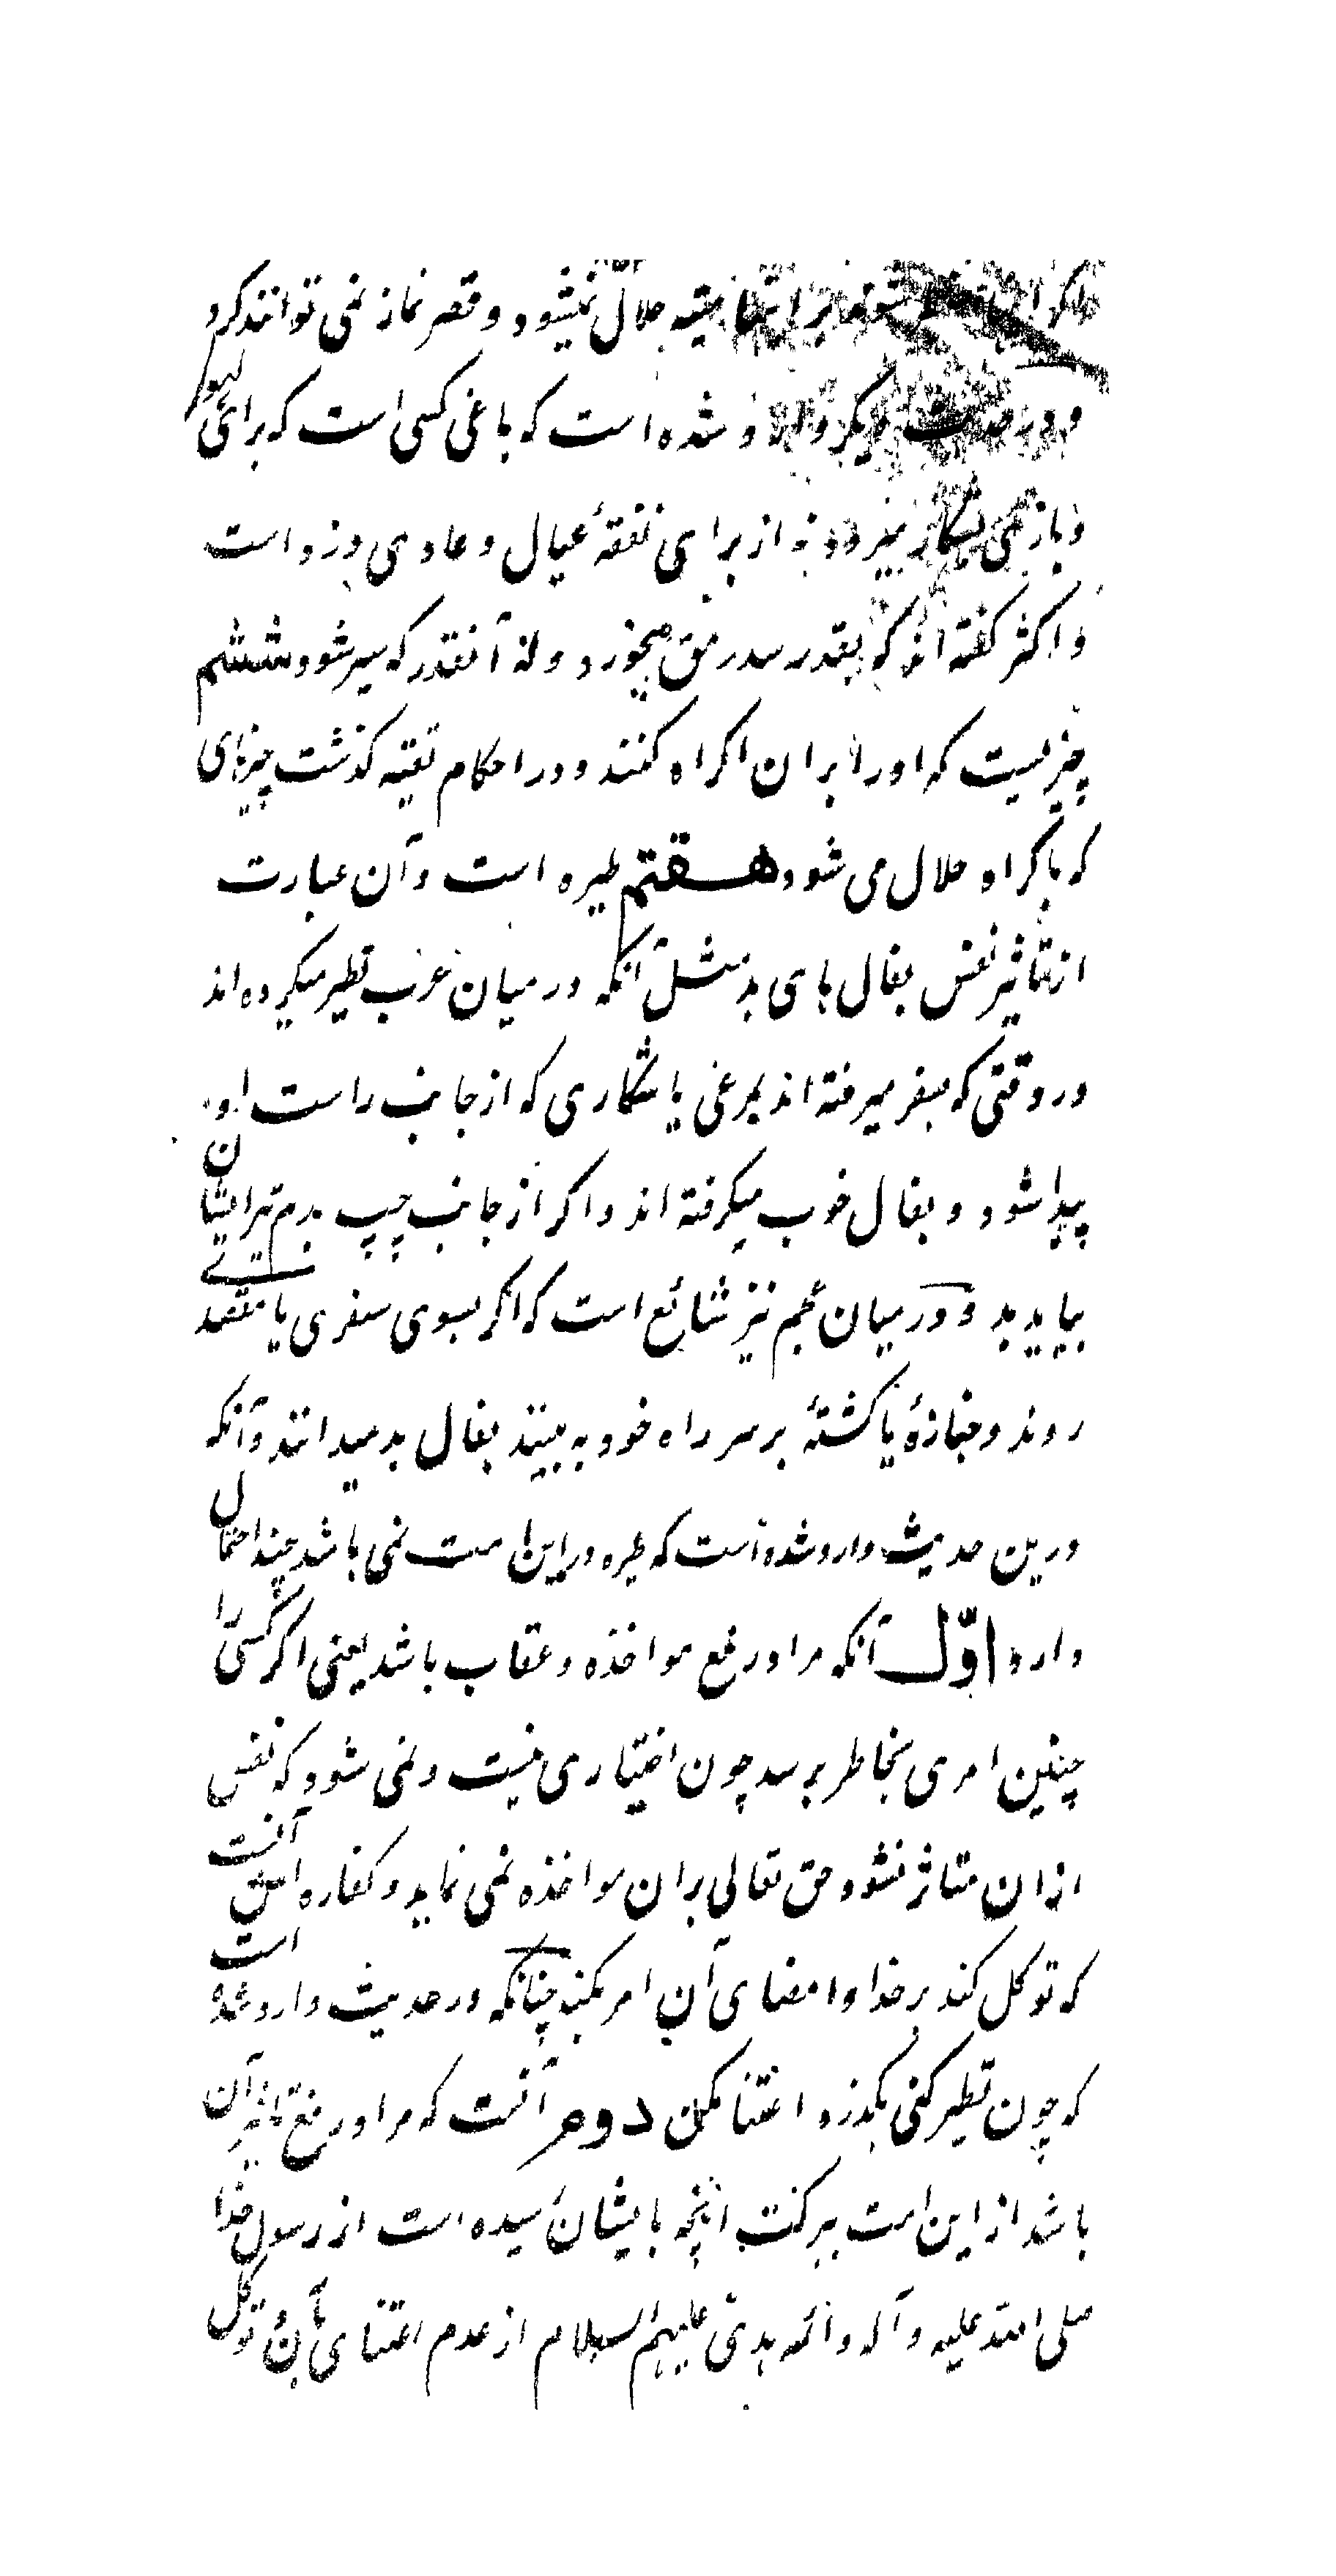 میته حلال نمیشود و قصر نماز نمی توانند کرد
و در حدیث دیگر وارد شده است که باغی کسی است که برای لهو
و بازی بشکار میرود نه از برای نفقهٔ عیال و عادی دزد است
و اکثر گفته اند که بقدر سدر مق میخورد و نه آنقدر که سیر شود ششم
چیزیست که او را بران اکراه کنند و در احکام تقیه گذشت چیزهای
که باکراه حلال می شود هفتم طیره است و آن عبارت
از تاثیر نفس بفال های بد مثل آنکه در میان عرب تطیر میکرده اند
در وقتی که بسفر میرفته اند بمرغی یا شکاری که از جانب راست او
پیدا شود و بفال خوب میگرفته اند و اگر از جانب چپ بدم تیر ایشان
بیاید بد و در میان عجم نیز شائع است که اگر بسوی سفری یا مقصدے
روند و جنازهٔ یا کشتهٔ بر سر راه خود به بینند بفال بد میدانند و آنکه
درین حدیث وارد شده است که طیره در این امت نمی باشد چند احتمال
دارد اوّل آنکه مراد رفع مواخذه و عقاب باشد یعنی اگر کسی را
چنین امری بخاطر برسد چون اختیاری نیست و نمی شود که نفس
ازان متاثر نشود حق تعالی بران مواخذه نمی نماید و کفاره اش آنست
که توکل کند بر خدا و امضای آن امر بکند چنانکه در حدیث وارد شده است
که چون تطیر کنی بگذر و اعتنا مکن دوم آنست که مراد رفع تاثیر آن
باشد از این امت ببرکت آنچه بایشان رسیده است از رسول خدا
صلی الله علیه و آله و ائمه هدی علیهم السلام از عدم اعتنای بآن و توکل